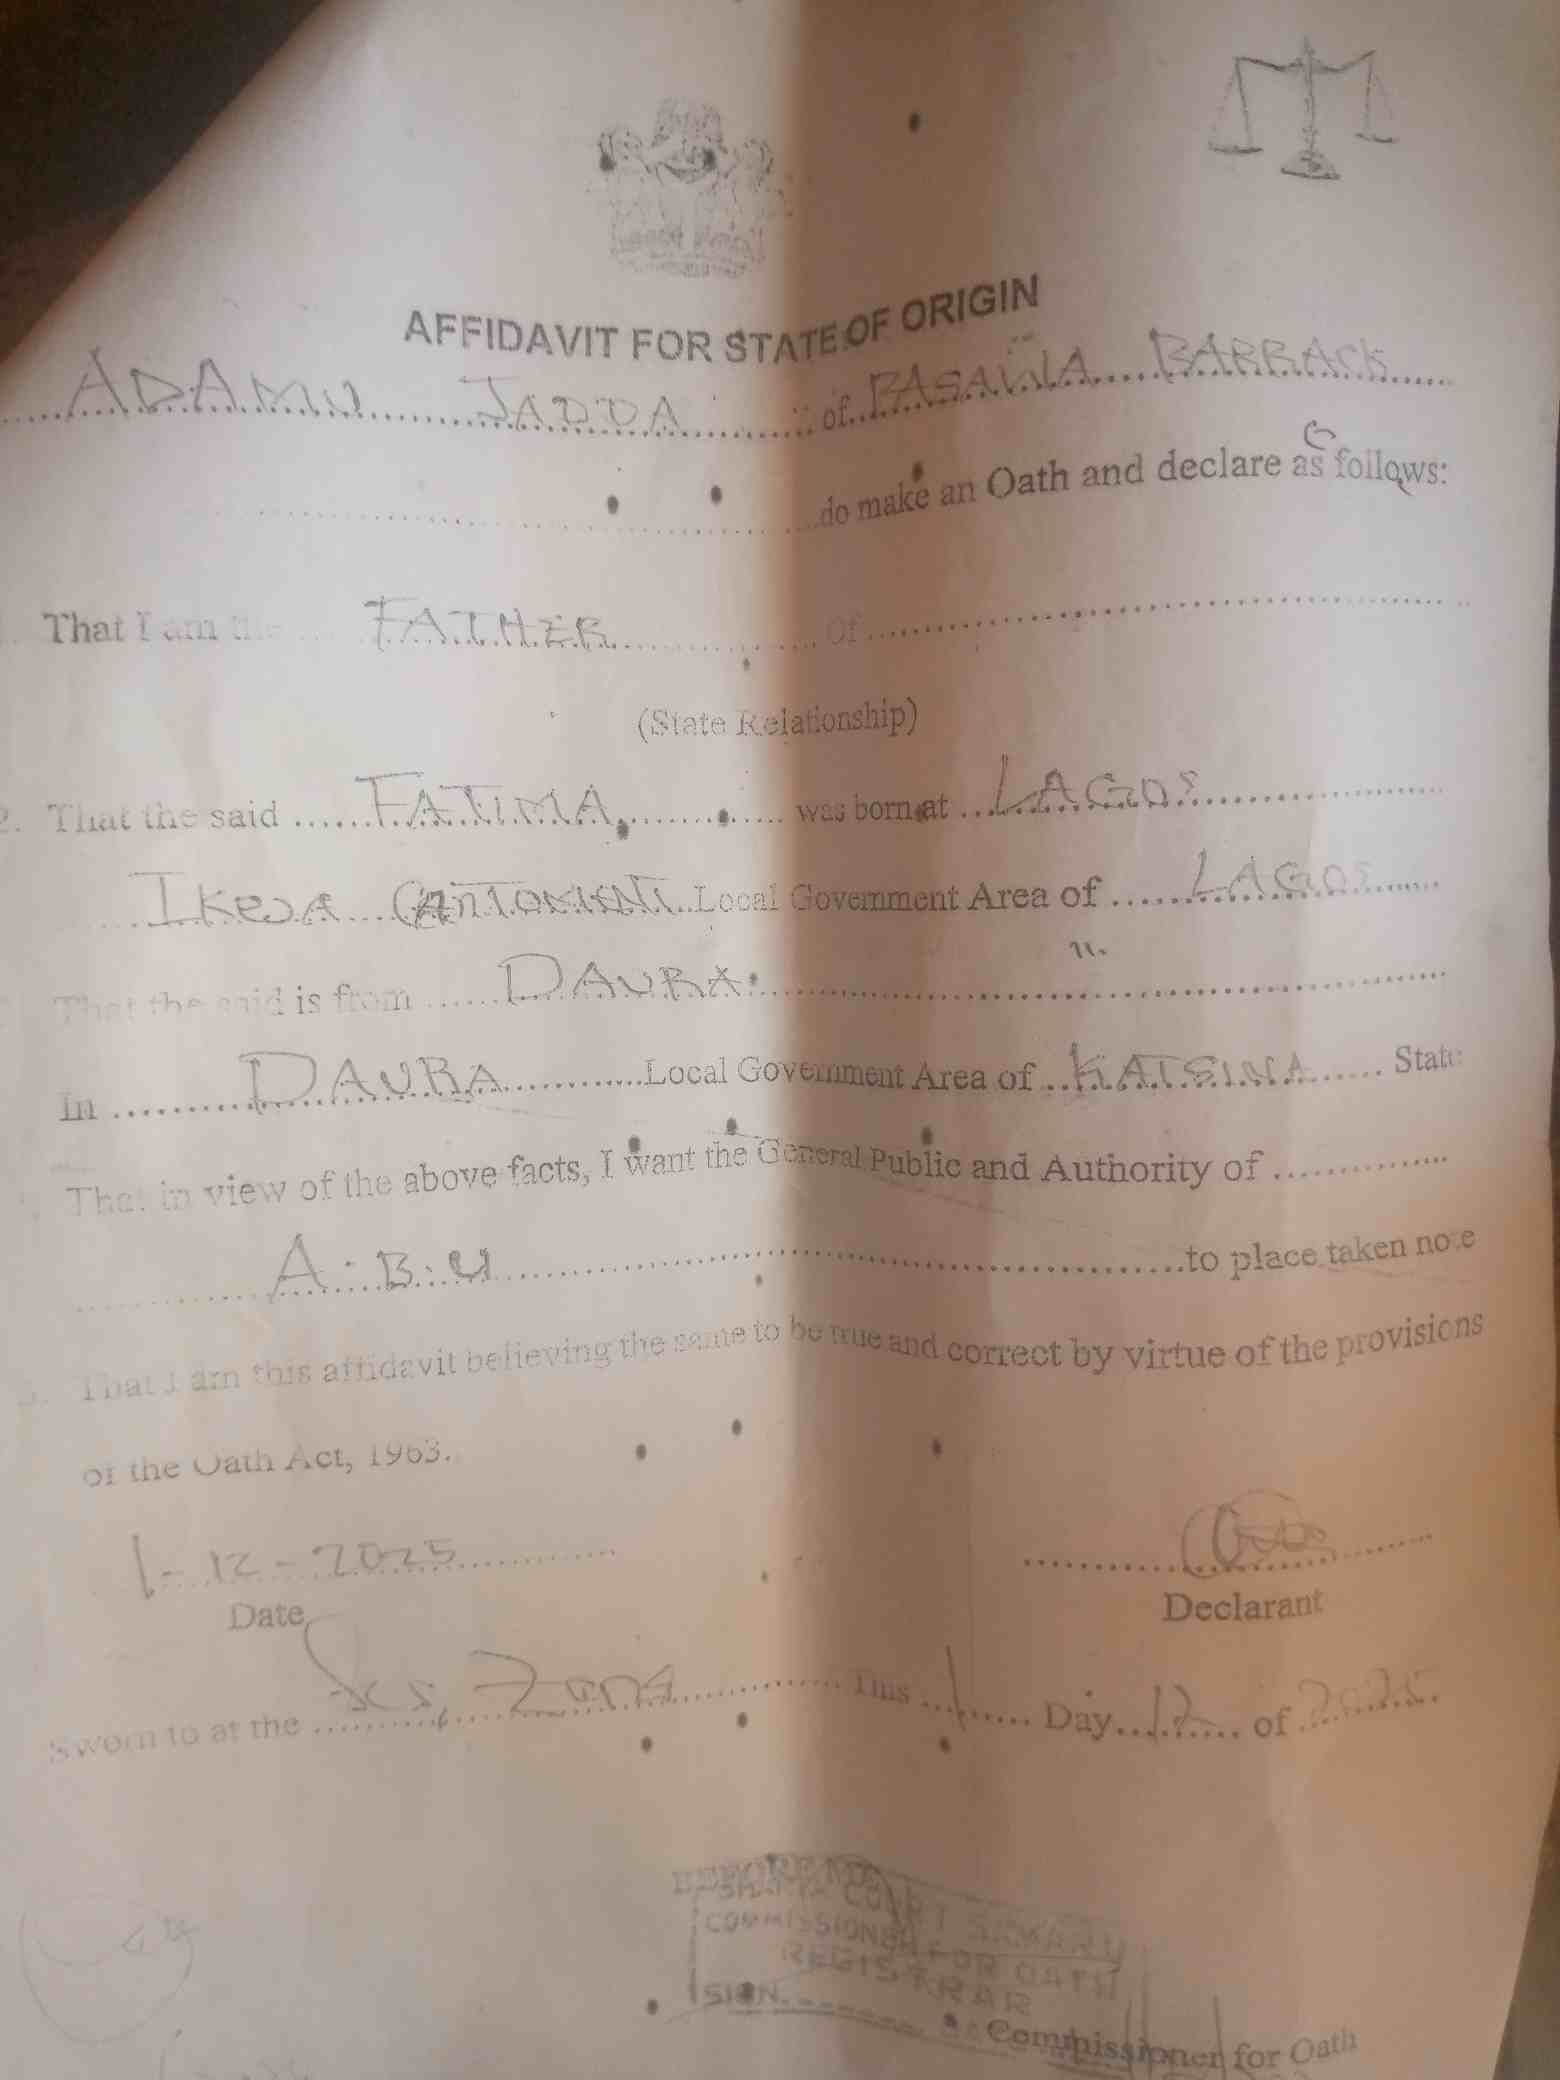 AFFIDAVIT FOR STATE OF ORIGIN
ADAMU JADDA of BASAWA BARRACK
do make an Oath and declare as follows:
That I am the FATHER Of
(State Relationship)
2. That the said FATIMA was born at LAGOS
IKEJA CANTONKENT Local Government Area of LAGOS
That the said is from DAURA
In DAURA Local Government Area of KATSINA State
That in view of the above facts, I want the General Public and Authority of
A.B.U to place taken note
That I am this affidavit believing the same to be true and correct by virtue of the provisions
of the Oath Act, 1963.
1-12-2025
Date
Declarant
Sworn to at the This 1 Day 12 of 2025
BEFORE ME
COURT SAMARU
COMMISSIONER FOR OATH
REGISTRAR
SIGN.
Commissioner for Oath